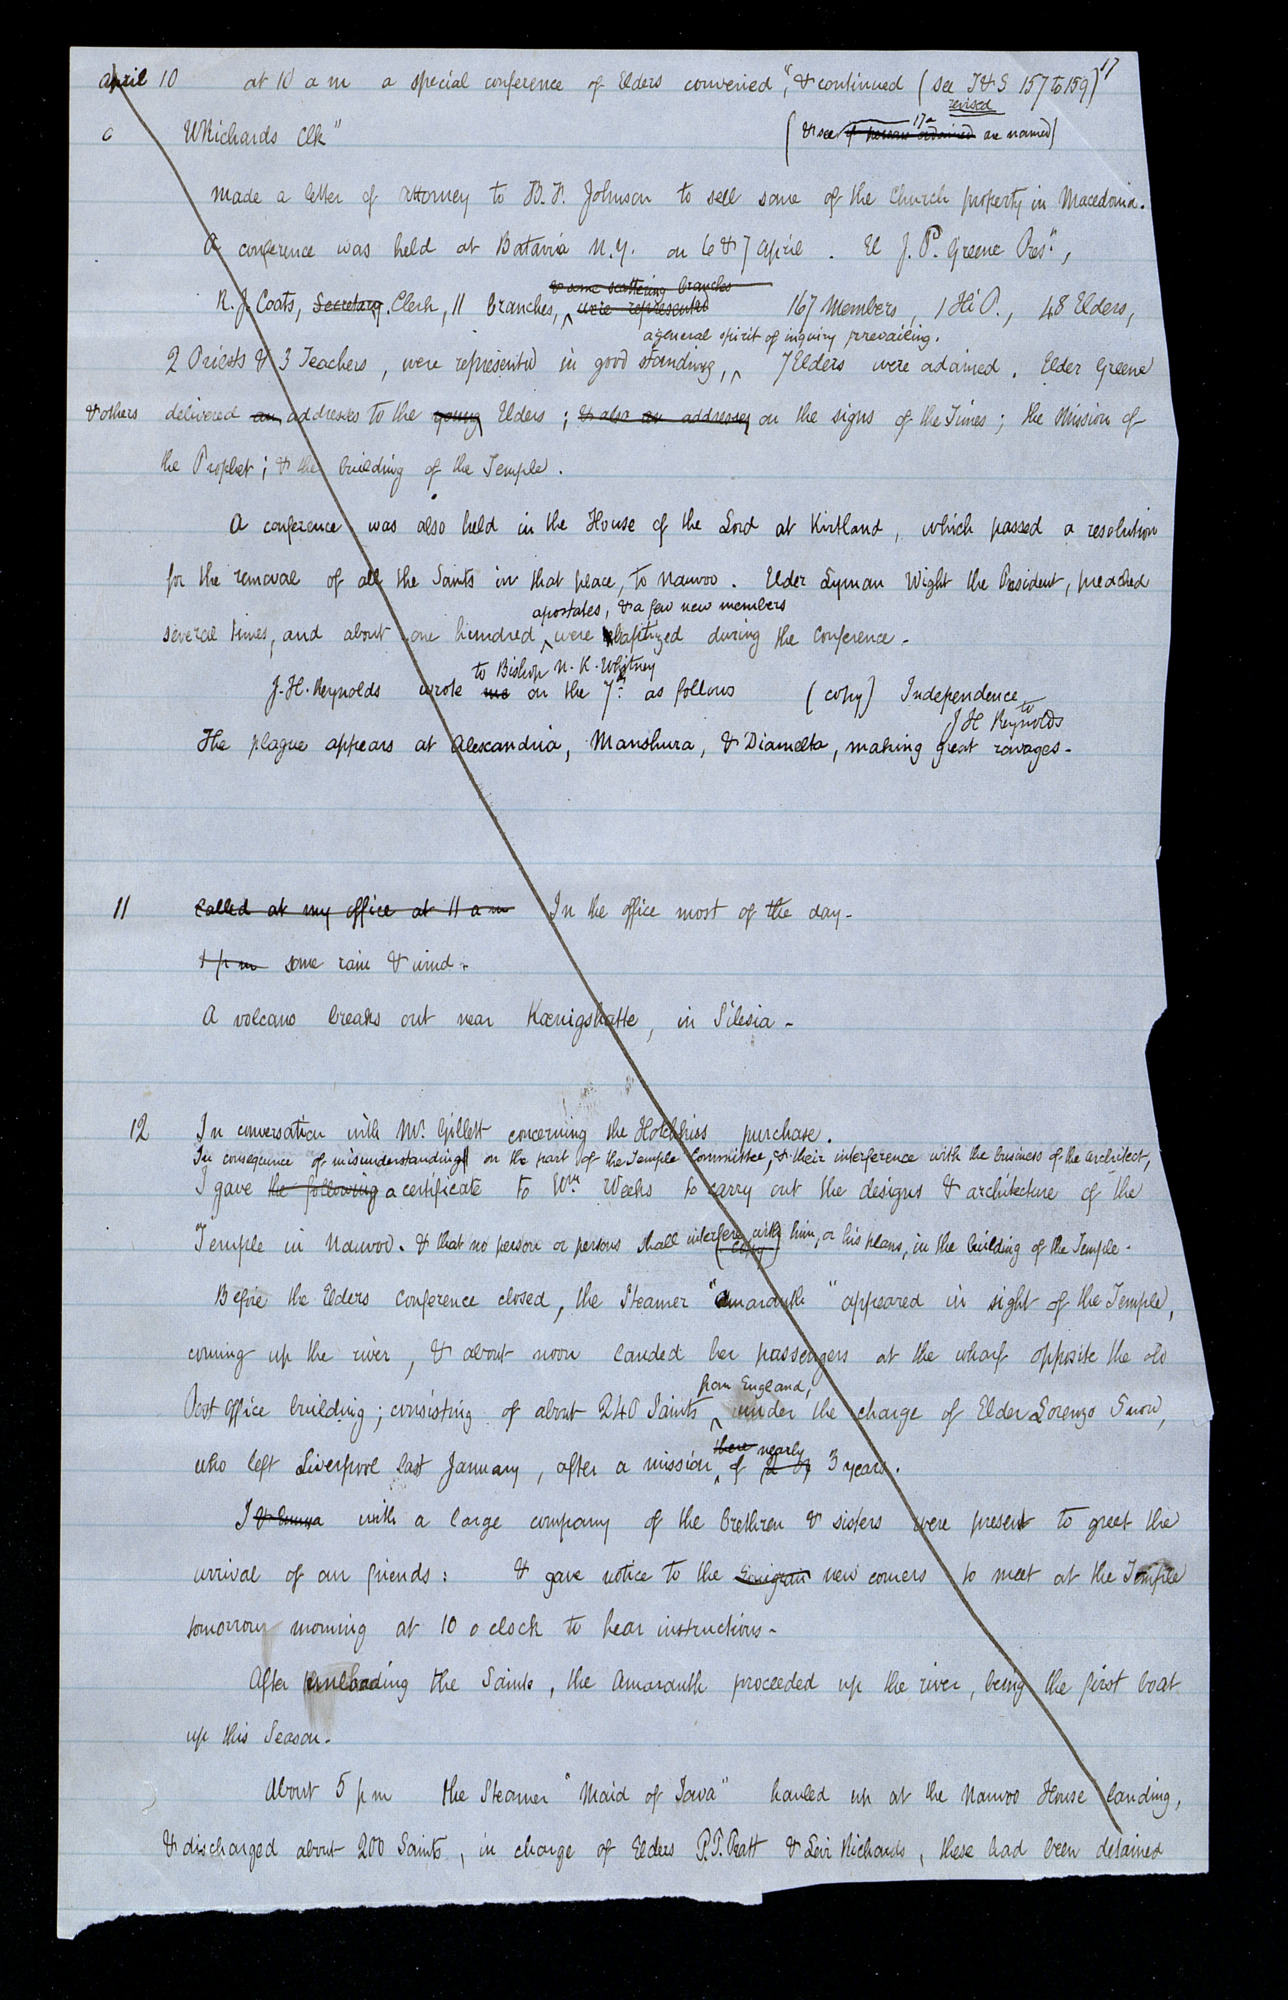 17
April 10 at 10 a m a special conference of Elders convened", & continued (see T&S 157 to 159)
revised
17a
c WRichards Clk" (& see if persons ordained are named)
made a letter of attorney to B. F. Johnson to sell some of the Church property in Macedonia.
A conference was held at Batavia N.Y. on 6 & 7 April. El J. P. Greene Prest,
& some scattering branches
R. J. Coats, Secretary. Clerk, 11 branches, ^ were represented 167 Members, 1 Hi P., 48 Elders,
a general spirit of inquiry prevailing.
2 Priests & 3 Teachers, were represented in good standing, ^ 7 Elders were ordained. Elder Greene
& others delivered an addresses to the young Elders; & also an addresses on the signs of the Times; the Mission of
the Prophet; & the building of the Temple.
A conference was also held in the House of the Lord at Kirtland, which passed a resolution
for the removal of all the Saints in that place, to Nauvoo. Elder Lyman Wight the President, preached
apostates, & a few new members
several times, and about one hundred ^ were baptized during the conference.
to Bishop N. K. Whitney
J. H. Reynolds wrote me on the 7th as follows (copy) Independence
to
J H Reynolds
The plague appears at Alexandria, Manshura, & Diamelta, making great ravages.
11 Called at my office at 11 a m In the office most of the day.
1 p m some rain & wind.
A volcano breaks out near Kœnigshatte, in Silesia.
12 In conversation with Mr. Gillett concerning the Hotchkiss purchase.
In consequence of misunderstanding on the part of the Temple Committee, & their interference with the business of the architect,
I gave the following a certificate to Wm Weeks to carry out the designs & architecture of the
Temple in Nauvoo. & that no person or persons shall interfere with him, or his plans, in the building of the Temple.
(copy)
Before the Elders conference closed, the Steamer "Amaranth" appeared in sight of the Temple,
coming up the river, & about noon landed her passengers at the wharf opposite the old
from England,
Post office building; consisting of about 240 Saints ^ under the charge of Elder Lorenzo Snow,
there nearly
who left Liverpool last January, after a mission ^ of 3 years.
I & Emma with a large company of the brethren & sisters were present to greet the
arrival of our friends: & gave notice to the Emigran new comers to meet at the Temple
tomorrow morning at 10 o clock to hear instructions.
After unloading the Saints, the Amaranth proceeded up the river, being the first boat
up this Season.
About 5 p m the Steamer "Maid of Iowa" hauled up at the Nauvoo House landing,
& discharged about 200 Saints, in charge of Elders P. P. Pratt & Levi Richards, these had been detained